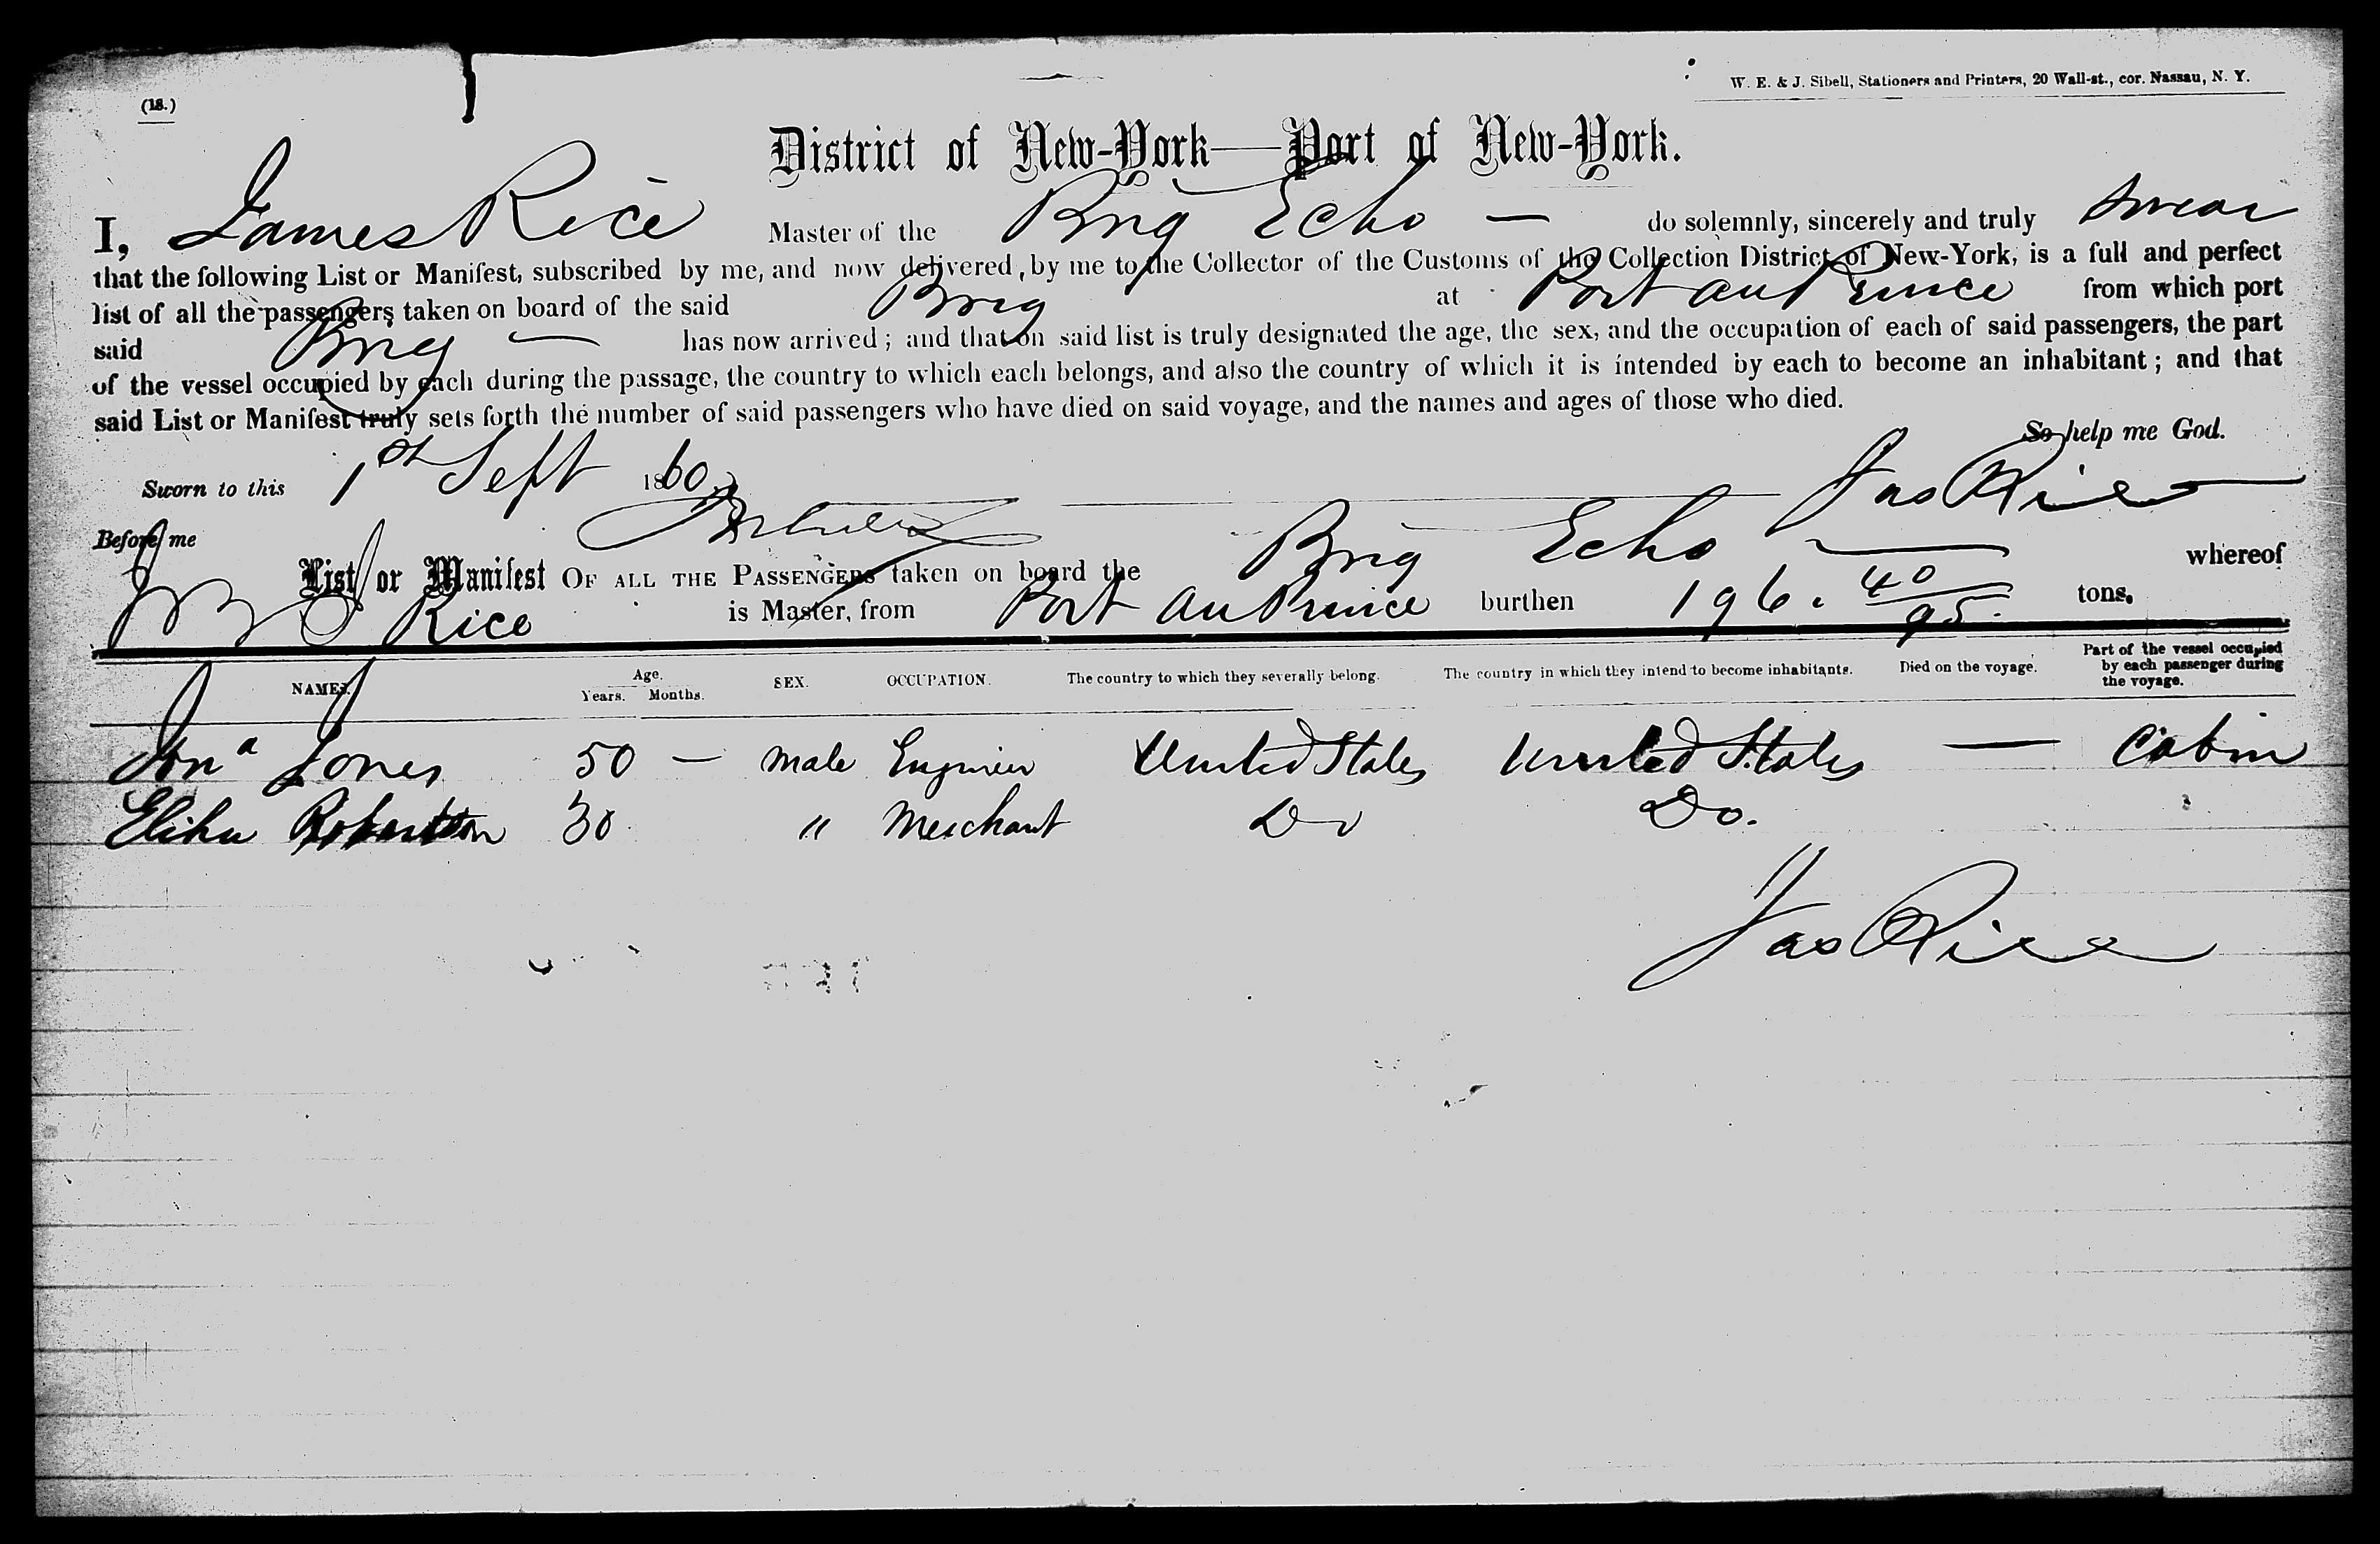 (18.)
W. E. & J. Sibell, Stationers and Printers, 20 Wall-st., cor. Nassau, N. Y.
District of New-York—Port of New-York.
I, James Rice Master of the Brig Echo — do solemnly, sincerely and truly swear
that the following List or Manifest, subscribed by me, and now delivered, by me to the Collector of the Customs of the Collection District of New-York, is a full and perfect
list of all the passengers taken on board of the said Brig at Port au Prince from which port
said Brig — has now arrived; and that on said list is truly designated the age, the sex, and the occupation of each of said passengers, the part
of the vessel occupied by each during the passage, the country to which each belongs, and also the country of which it is intended by each to become an inhabitant; and that
said List or Manifest truly sets forth the number of said passengers who have died on said voyage, and the names and ages of those who died.
So help me God.
Sworn to this 1st Sept 1860. Jas Rice
Before me
List or Manifest OF ALL THE PASSENGERS taken on board the Brig Echo — whereof
Rice is Master, from Port au Prince burthen 196. 40/95. tons.
NAMES. Age. Years. Months. SEX. OCCUPATION. The country to which they severally belong. The country in which they intend to become inhabitants. Died on the voyage. Part of the vessel occupied by each passenger during the voyage.
Jona Jones 50 — male Engineer United States United States — Cabin
Elihu Robertson 30 " Merchant Do Do.
Jas Rice